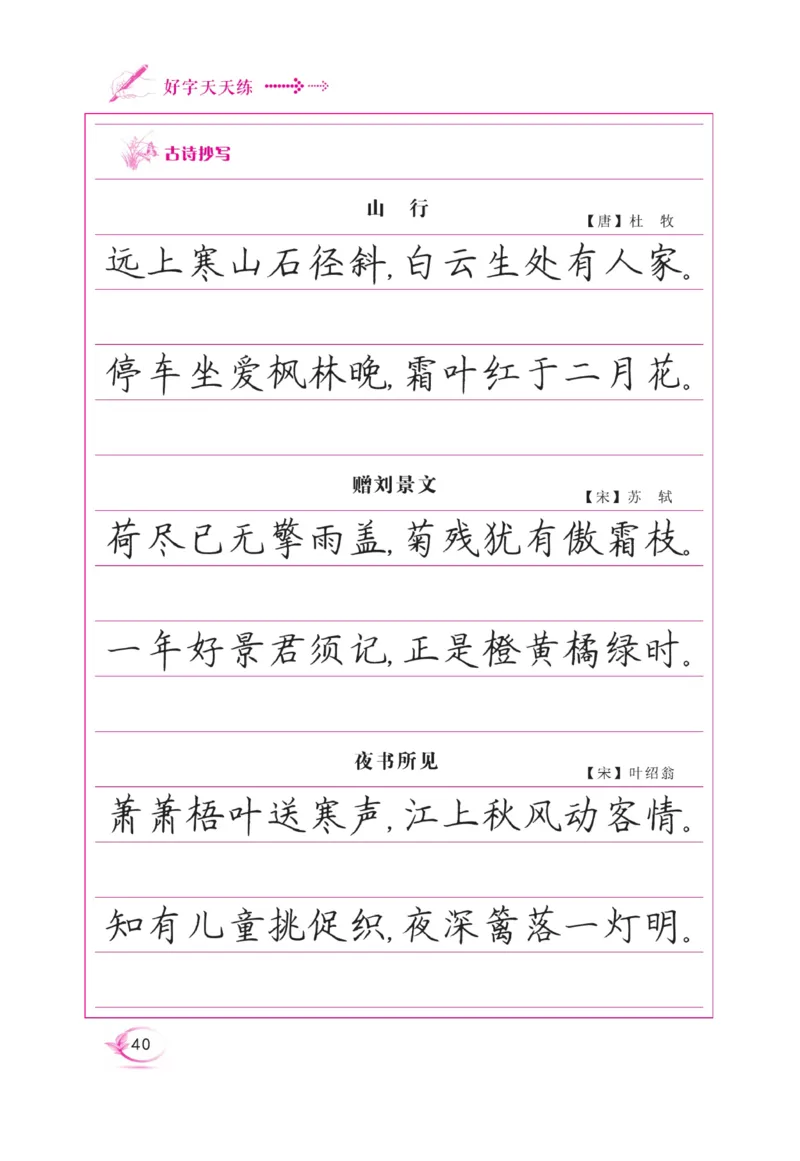 好字天天练
古诗抄写
山 行
【唐】杜 牧
远上寒山石径斜,白云生处有人家。
停车坐爱枫林晚,霜叶红于二月花。
赠刘景文
【宋】苏 轼
荷尽已无擎雨盖,菊残犹有傲霜枝。
一年好景君须记,正是橙黄橘绿时。
夜书所见
【宋】叶绍翁
萧萧梧叶送寒声,江上秋风动客情。
知有儿童挑促织,夜深篱落一灯明。
40